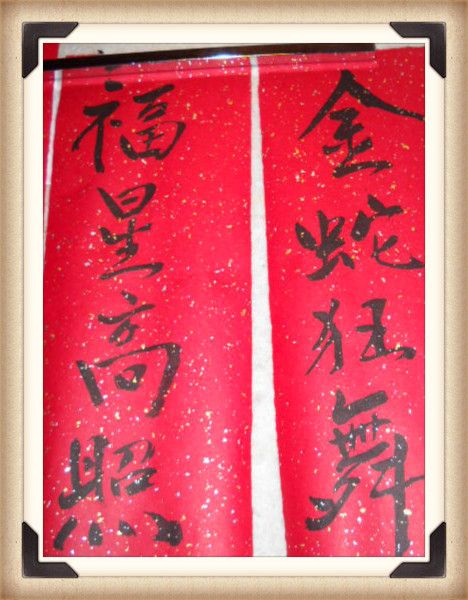 金蛇狂舞
福星高照